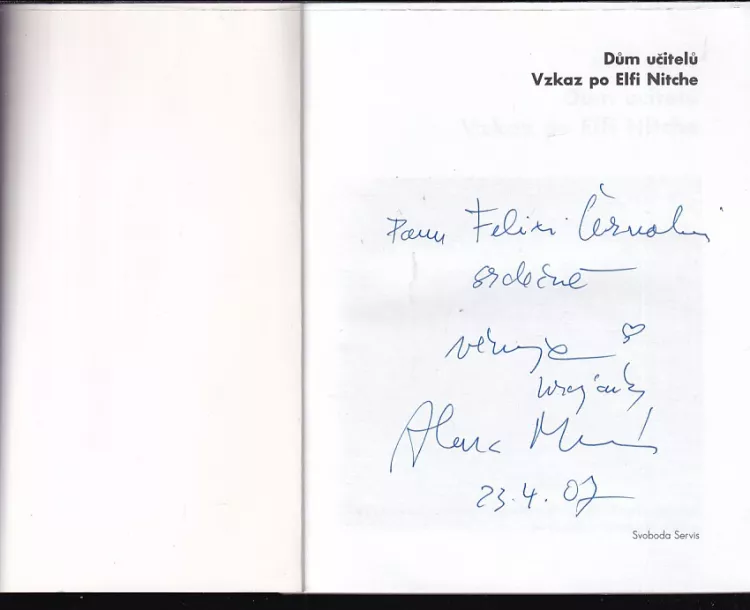 Dům učitelů
Vzkaz po Elfi Nitche
Panu Felixi
srdečně
věnuje
Alena
23.4.07
Svoboda Servis